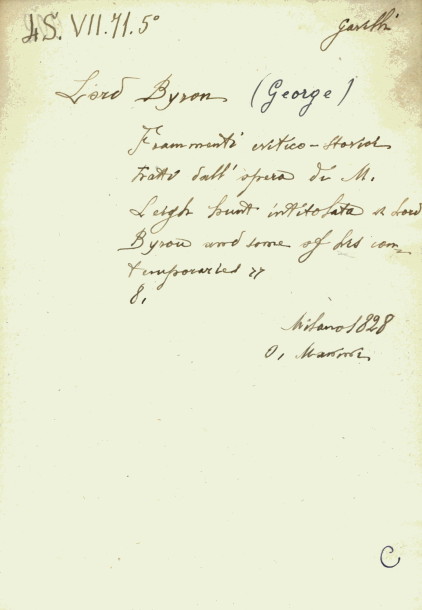 4S. VII. 71. 5°
Lord Byron (George)
Frammenti critico-storici
tratti dall' opera di M.
Leigh Hunt intitolata « Lord
Byron and some of his con=
temporaries »
8,
Milano 1828
O,
C